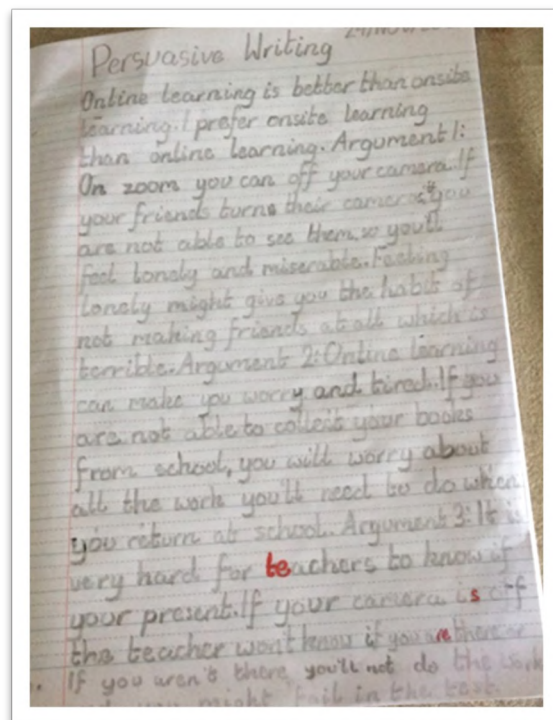 Persuasive Writing
Online learning is better than onsite
learning. I prefer onsite learning
than online learning. Argument 1:
On zoom you can off your camera. If
your friends turns their cameras you
are not able to see them, so you'll
feel lonely and miserable. Feeling
lonely might give you the habit of
not making friends at all which is
terrible. Argument 2: Online learning
can make you worry and tired. If you
are not able to collect your books
from school, you will worry about
all the work you'll need to do when
you return at school. Argument 3: It is
very hard for teachers to know if
your present. If your camera is off
the teacher won't know if you are there or
If you aren't there you'll not do the work
you might fail in the test.